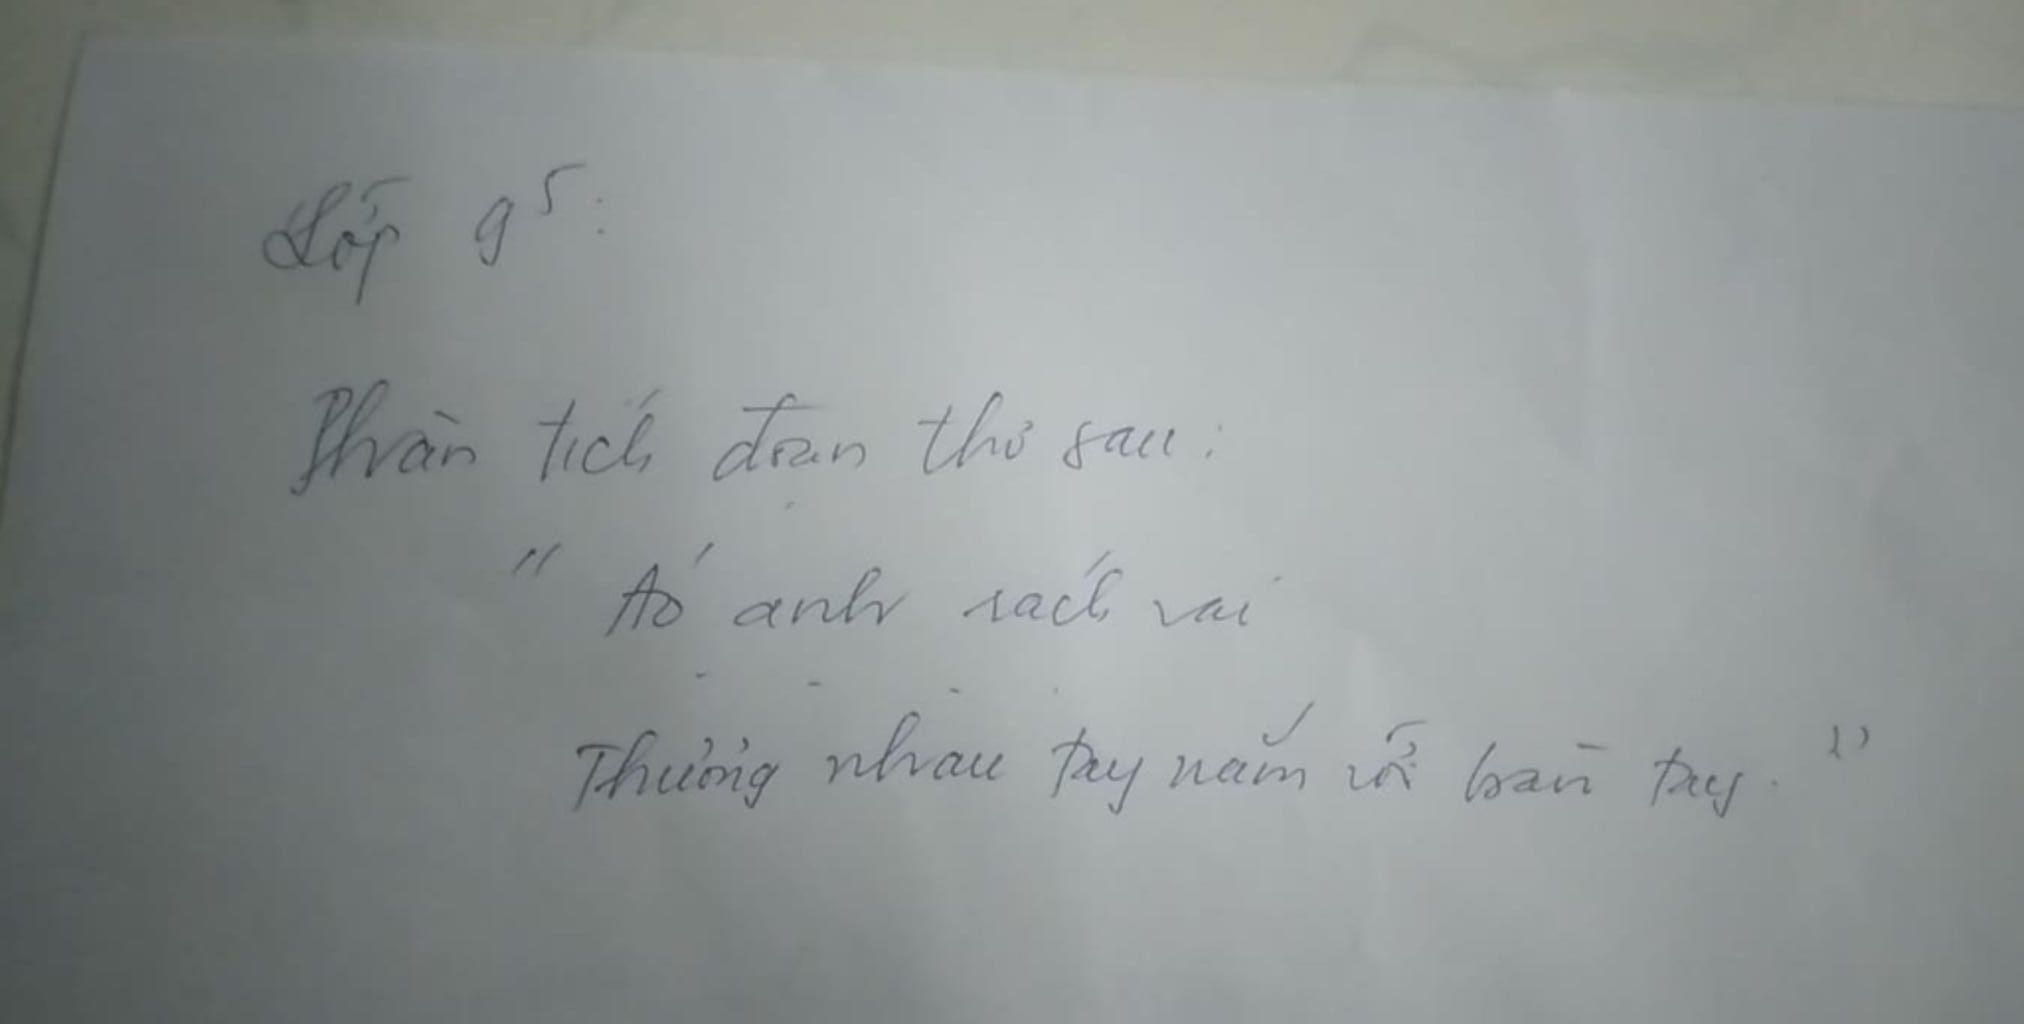 Lớp 9⁵:
Phân tích đoạn thơ sau:
" Áo anh rách vai
- - - .
Thương nhau tay nắm với bàn tay. "